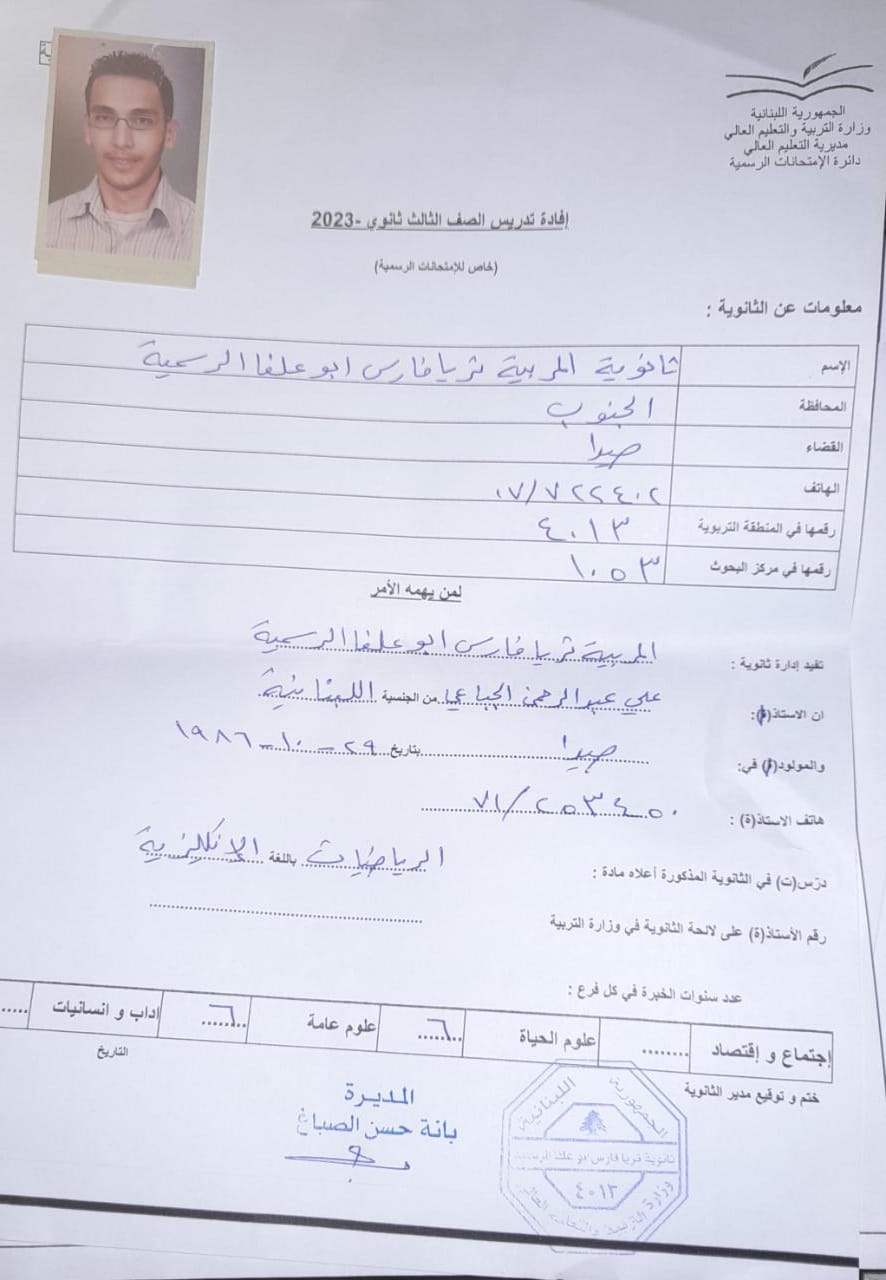 الجمهورية اللبنانية
وزارة التربية والتعليم العالي
مديرية التعليم العالي
دائرة الإمتحانات الرسمية
إفادة تدريس الصف الثالث ثانوي -2023
(خاص للإمتحانات الرسمية)
معلومات عن الثانوية :
الإسم ثانوية المربية ثريا فارس ابو علفا الرسمية
المحافظة الجنوب
القضاء صيدا
الهاتف ٠٧/٧٢٢٤٠٢
رقمها في المنطقة التربوية ٤٠١٣
رقمها في مركز البحوث ١٠٥٣
لمن يهمه الأمر
تفيد إدارة ثانوية : المربية ثريا فارس ابو علفا الرسمية
ان الاستاذ(ة): علي عبدالرحمن الجباعي من الجنسية اللبنانية
والمولود(ة) في: صيدا بتاريخ ٢٩-١٠-١٩٨٦
هاتف الاستاذ(ة) : ٧١/٢٥٣٤٥٠
درّس(ت) في الثانوية المذكورة أعلاه مادة : الرياضيات باللغة الإنكليزية
رقم الأستاذ(ة) على لائحة الثانوية في وزارة التربية
عدد سنوات الخبرة في كل فرع :
إجتماع و إقتصاد ........ علوم الحياة ٦ علوم عامة ٦ اداب و انسانيات .....
ختم و توقيع مدير الثانوية التاريخ
المديرة
بانة حسن الصباغ
الجمهورية اللبنانية
ثانوية ثريا فارس ابو علفا الرسمية
٤٠١٣
وزارة التربية والتعليم العالي